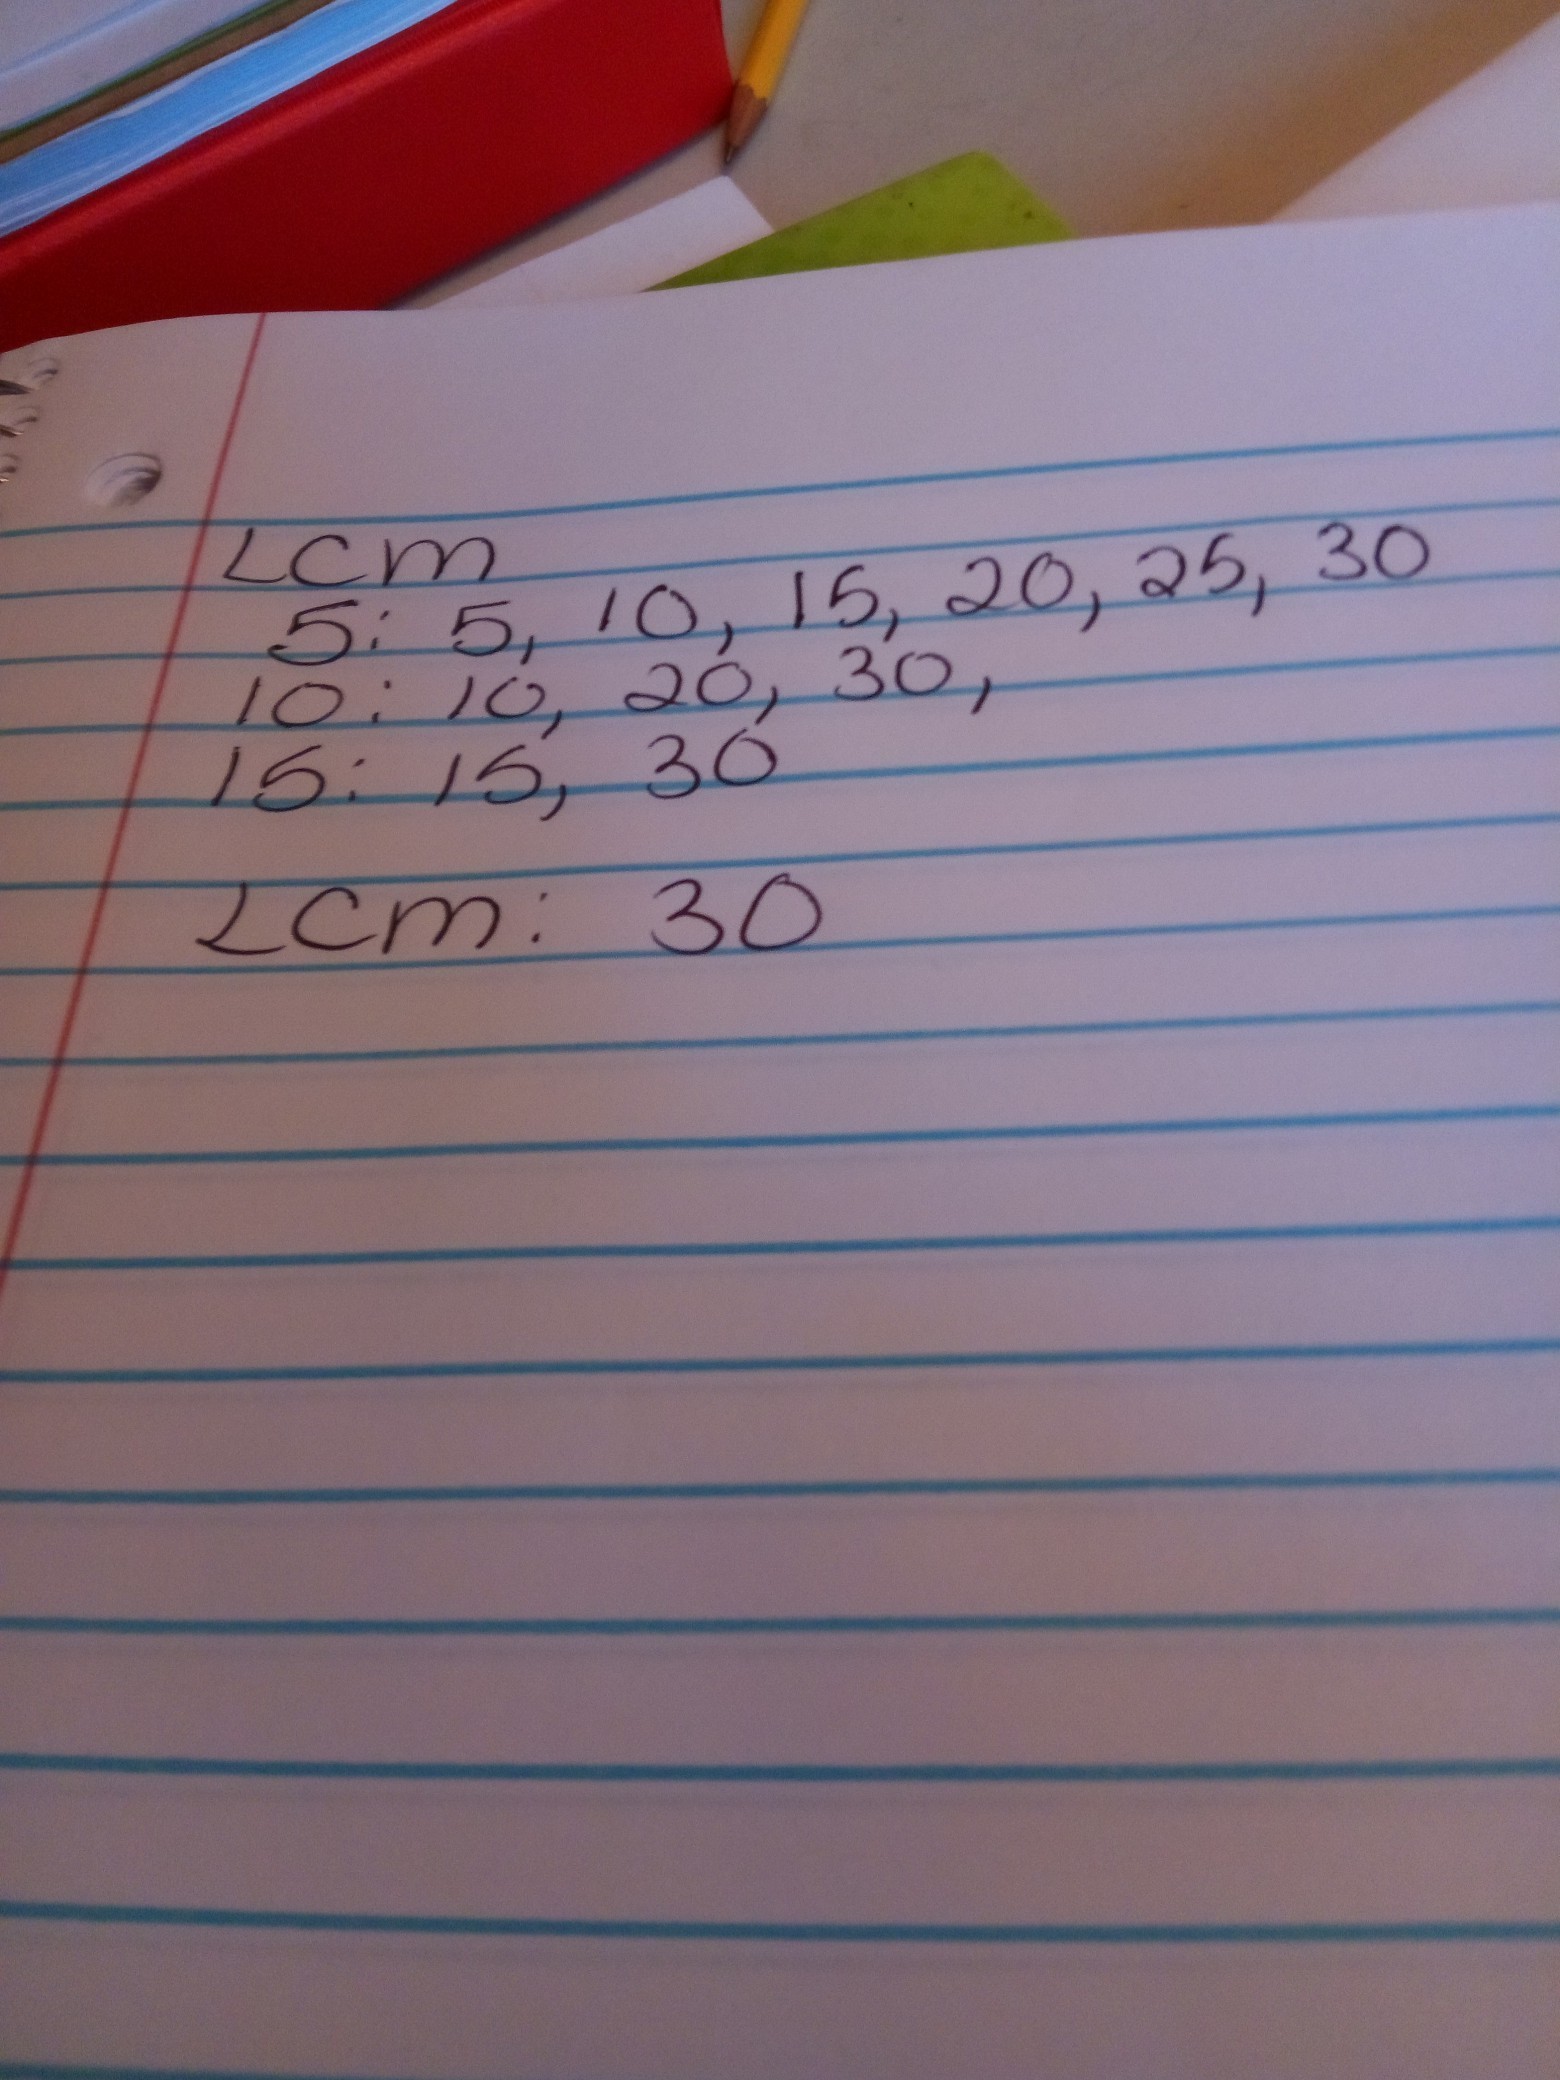 LCM
5: 5, 10, 15, 20, 25, 30
10: 10, 20, 30,
15: 15, 30
LCM: 30